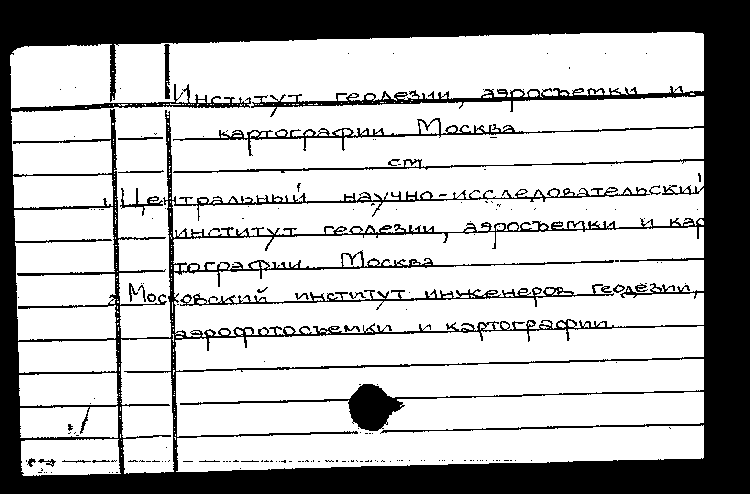 Институт геодезии, аэросъемки и
картографии. Москва
см.
1. Центральный научно-исследовательский
институт геодезии, аэросъемки и кар
тографии. Москва
2. Московский институт инженеров геодезии,
аэрофотосъемки и картографии.